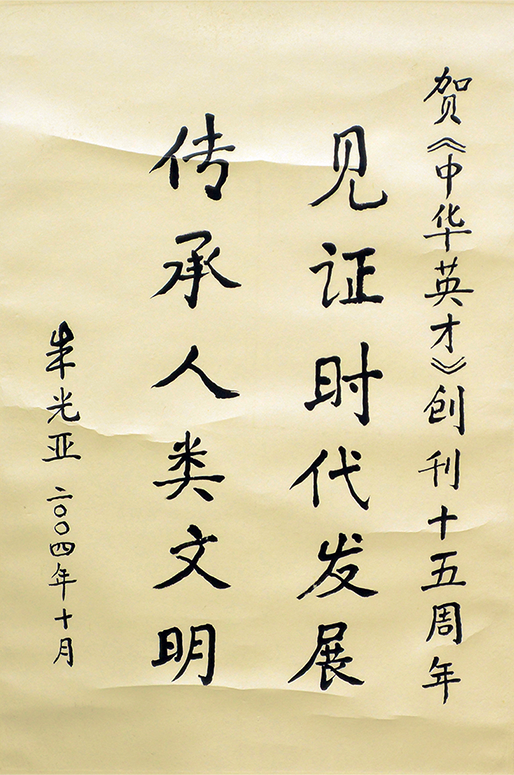 贺《中华英才》创刊十五周年
见证时代发展
传承人类文明
朱光亚 二〇〇四年十月